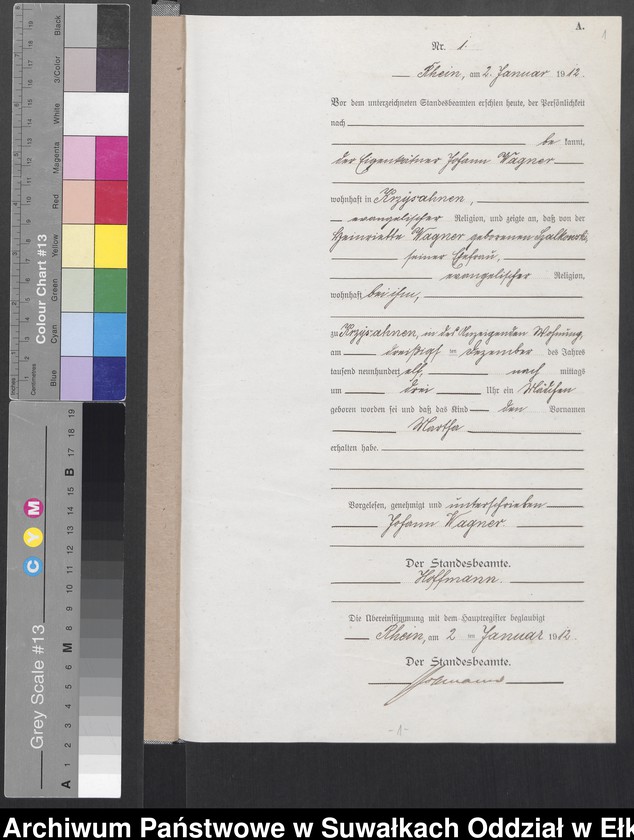 A.
1
Nr. 1.
Rhein, am 2. Januar 1912.
Vor dem unterzeichneten Standesbeamten erschien heute, der Persönlichkeit
nach
be kannt,
der Eigenkätner Johann Wagner
wohnhaft in Krzysahnen,
evangelischer Religion, und zeigte an, daß von der
Heinriette Wagner geborenen Szalkowski,
seiner Ehefrau,
evangelischer Religion,
wohnhaft bei ihm,
zu Krzysahnen, in des Anzeigenden Wohnung,
am dreißigsten Dezember des Jahres
tausend neunhundert elf, nach mittags
um drei Uhr ein Mädchen
geboren worden sei und daß das Kind den Vornamen
Martha
erhalten habe.
Vorgelesen, genehmigt und unterschrieben
Johann Wagner.
Der Standesbeamte.
Hoffmann.
Die Übereinstimmung mit dem Hauptregister beglaubigt
Rhein, am 2 ten Januar 1912.
Der Standesbeamte.
-1-
Colour Chart #13
Blue Cyan Green Yellow Red Magenta White 3/Color Black
Inches
Centimetres
Grey Scale #13
C Y M
A 1 2 3 4 5 6 M 8 9 10 11 12 13 14 15 B 17 18 19
Archiwum Państwowe w Suwałkach Oddział w Ełk